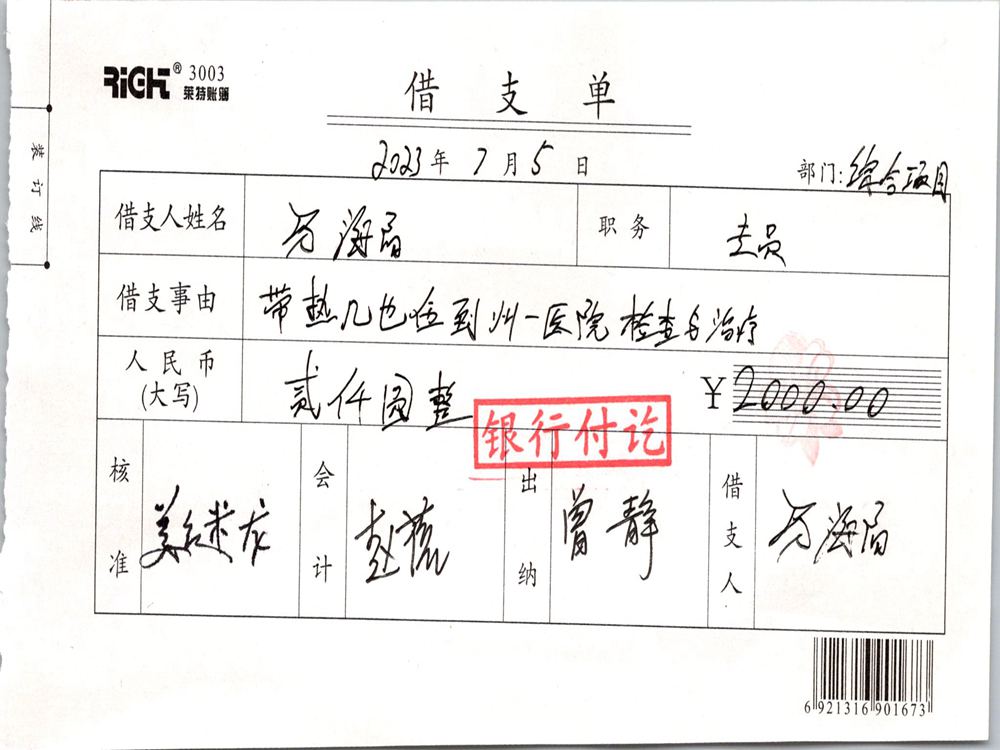 RiGHT® 3003
莱特账簿
借支单
2023年7月5日
部门:综合项目
装订线
借支人姓名 万海眉 职务 专员
借支事由 带热几也 到州一医院检查与治疗
人民币(大写) 贰仟圆整 ¥2000.00
银行付讫
核准 会计 出纳 曾静 借支人 万海眉
6 921316 901673